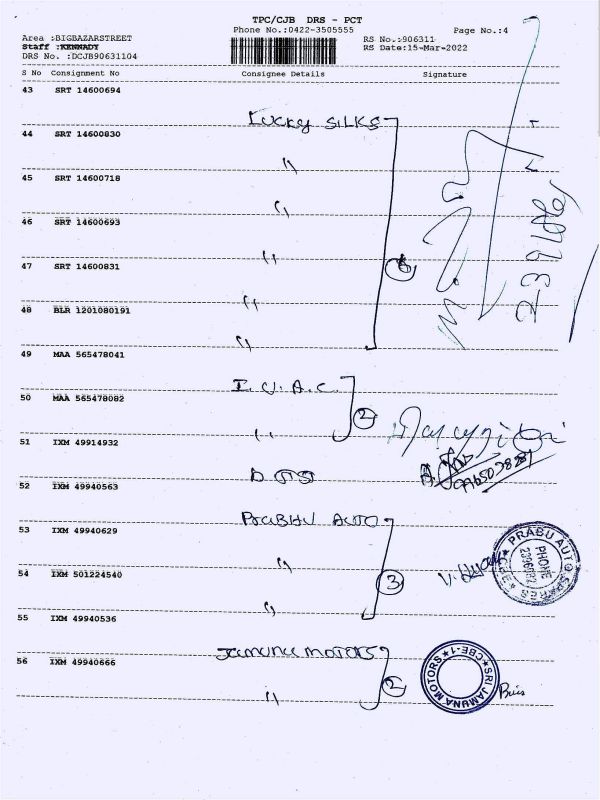 TPC/CJB DRS - PCT
Phone No.:0422-3505555
Page No.:4
Area :BIGBAZARSTREET
RS No.:906311
Staff :KENNADY
RS Date:15-Mar-2022
DRS No. :DCJB90631104
S No Consignment No Consignee Details Signature
43 SRT 14600694
Lucky SILKS
44 SRT 14600830
"
45 SRT 14600718
"
46 SRT 14600693
"
47 SRT 14600831
6
48 BLR 1201080191
"
49 MAA 565478041
I.U.A.C.
50 MAA 565478082
2
51 IXM 49914932
"
52 IXM 49940563
PRABHU AUTO
53 IXM 49940629
"
54 IXM 501224540
3
"
55 IXM 49940536
JAMUNA MOTORS
56 IXM 49940666
2
"
PRABU AUTO SPARES
PHONE
CBE
SRI JAMUNA MOTORS
CBE-1